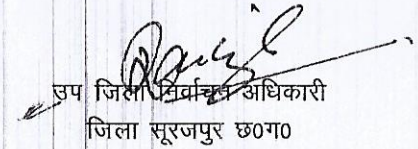 उप जिला निर्वाचन अधिकारी
जिला सूरजपुर छ0ग0